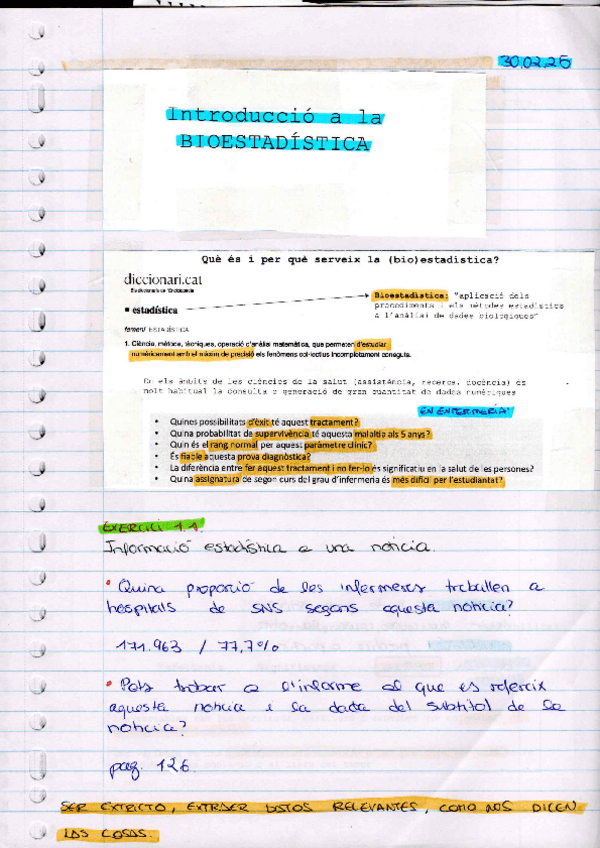 30.02.26
Introducció a la
BIOESTADÍSTICA
Què és i per què serveix la (bio)estadística?
diccionari.cat
■ estadística
Bioestadística: "aplicació dels
procediments i els mètodes estadístics
a l'anàlisi de dades biològiques"
femení ESTADÍSTICA
1. Ciència, mètode, tècniques, operació d'anàlisi matemàtica, que permeten d'estudiar
numèricament amb el màxim de precisió els fenòmens col·lectius incompletament coneguts.
En els àmbits de les ciències de la salut (assistència, recerca, docència) és
molt habitual la consulta o generació de gran quantitat de dades numèriques
EN ENFERMERÍA
• Quines possibilitats d'èxit té aquest tractament?
• Quina probabilitat de supervivència té aquesta malaltia als 5 anys?
• Quin és el rang normal per aquest paràmetre clínic?
• És fiable aquesta prova diagnòstica?
• La diferència entre fer aquest tractament i no fer-lo és significatiu en la salut de les persones?
• Quina assignatura de segon curs del grau d'infermeria és més difícil per l'estudiantat?
EXERCICI 1.1.
Informació estadística a una notícia.
• Quina proporció de les infermeres treballen a
hospitals de SNS segons aquesta notícia?
171.963 / 77,7%
• Pots trobar a l'informe al que es refereix
aquesta notícia i la dada del subtítol de la
notícia?
pag. 126.
SER EXTRICTO, EXTRAER DATOS RELEVANTES, COMO NOS DICEN
LAS COSAS.